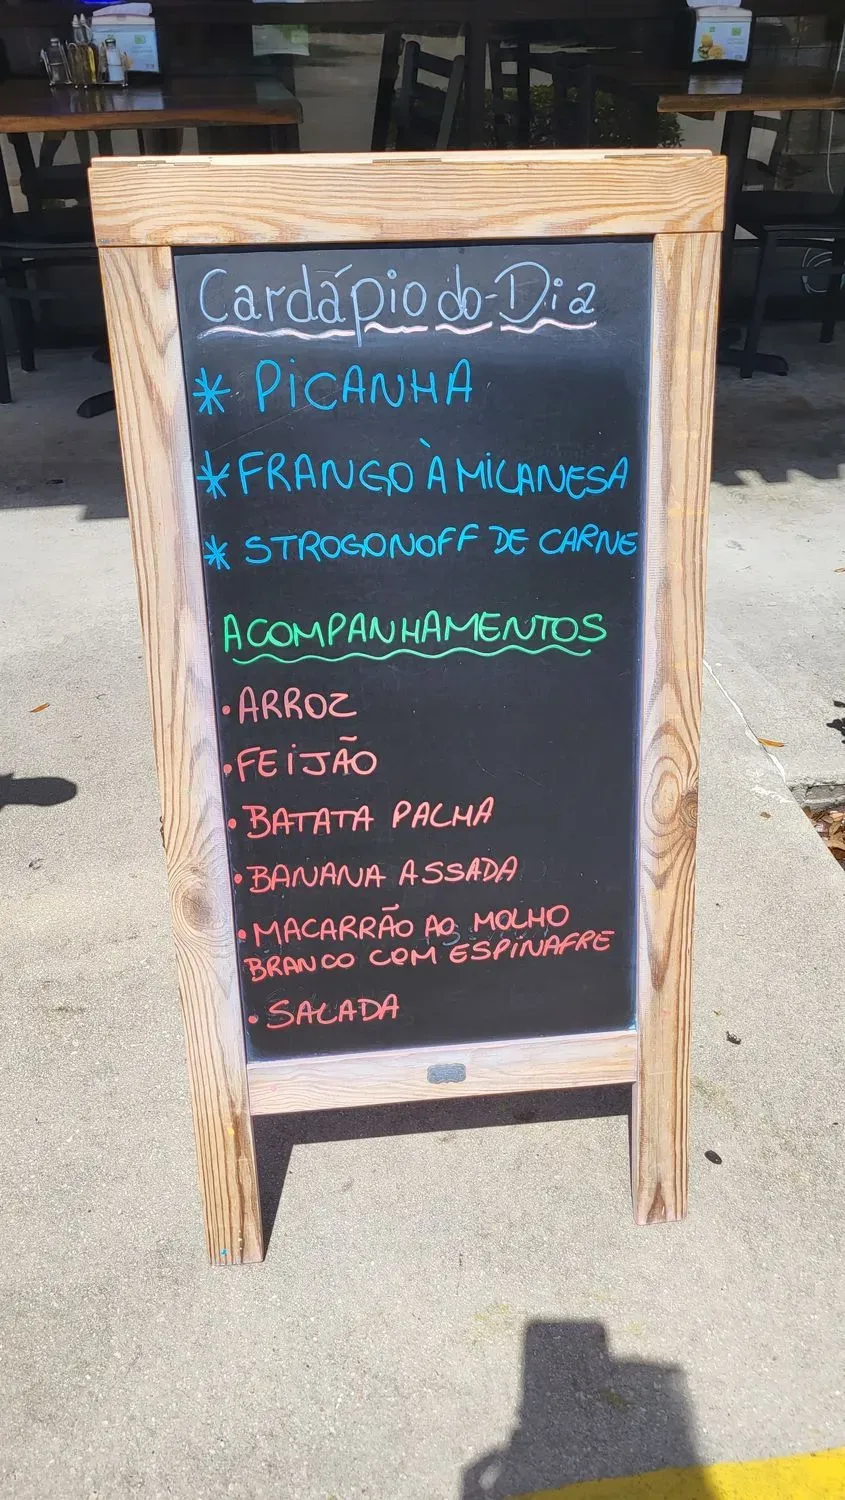 Cardápio do Dia
* PICANHA
* FRANGO À MILANESA
* STROGONOFF DE CARNE
ACOMPANHAMENTOS
• ARROZ
• FEIJÃO
• BATATA PALHA
• BANANA ASSADA
• MACARRÃO AO MOLHO
BRANCO COM ESPINAFRE
• SALADA